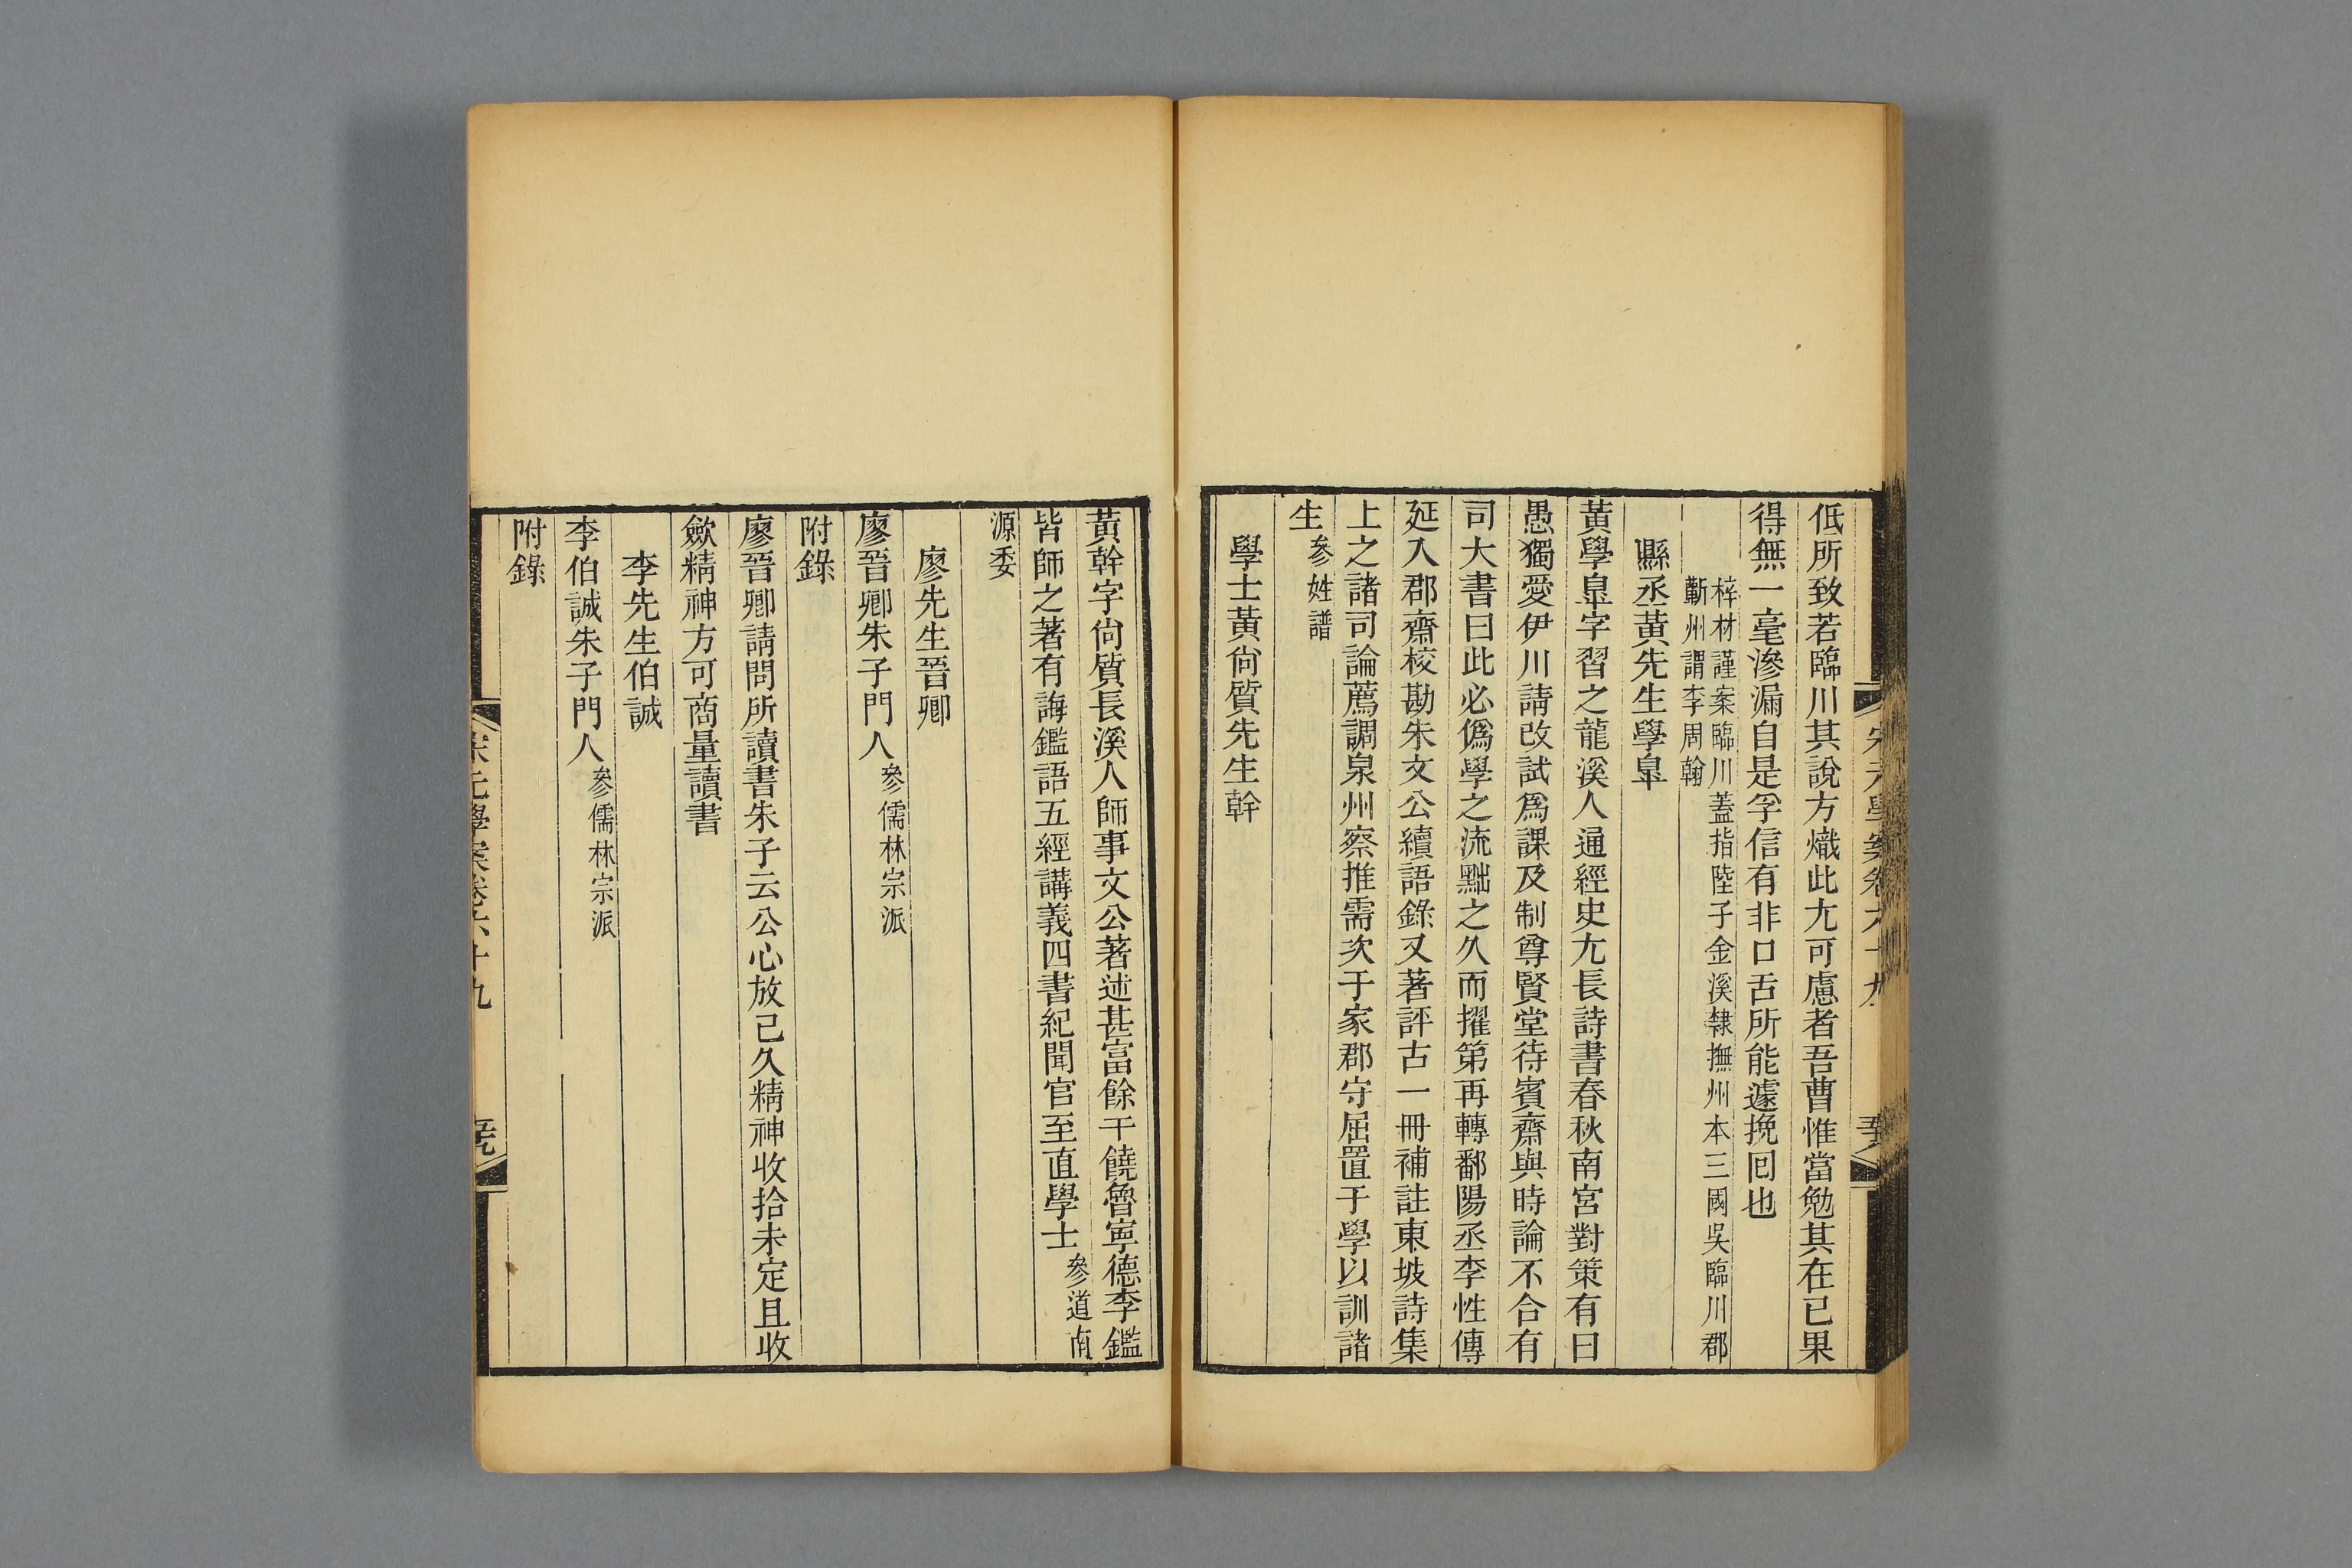 低所致若臨川其說方熾此尢可慮者吾曹惟當勉其在已果
得無一毫滲漏自是孚信有非口舌所能遽挽囘也
梓材謹案臨川蓋指陸子金溪隸撫州本三國吳臨川郡
蘄州謂李周翰
縣丞黃先生學臯
黃學臯字習之龍溪人通經史尢長詩書春秋南宮對策有曰
愚獨愛伊川請改試爲課及制尊賢堂待賓齋與時論不合有
司大書曰此必僞學之流黜之久而擢第再轉鄱陽丞李性傳
延入郡齋校勘朱文公續語錄又著評古一冊補註東坡詩集
上之諸司論薦調泉州察推需次于家郡守屈置于學以訓諸
生參姓譜
學士黃尙質先生幹
黃幹字尙質長溪人師事文公著述甚富餘干饒魯寧德李鑑
皆師之著有誨鑑語五經講義四書紀聞官至直學士參道南
源委
廖先生晉卿
廖晉卿朱子門人參儒林宗派
附錄
廖晉卿請問所讀書朱子云公心放已久精神收拾未定且收
斂精神方可商量讀書
李先生伯誠
李伯誠朱子門人參儒林宗派
附錄
宋元學案卷六十九